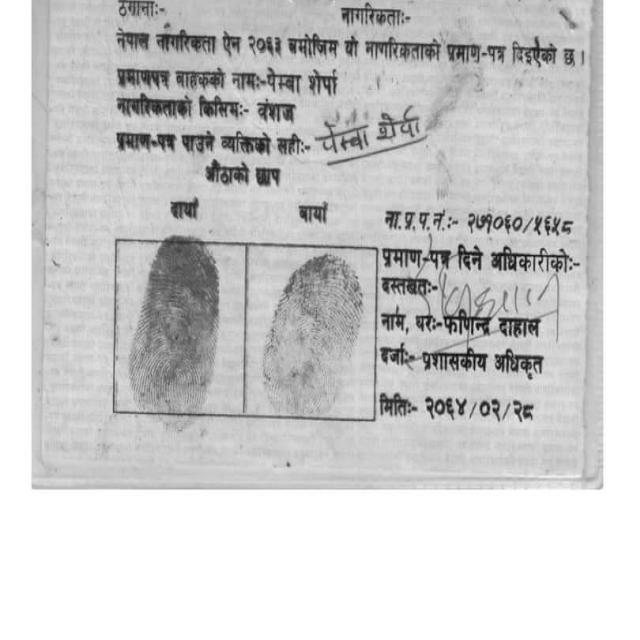 ठेगानाः-
नागरिकताः-
नेपाल नागरिकता ऐन २०६३ बमोजिम यो नागरिकताको प्रमाण-पत्र दिइएको छ।
प्रमाणपत्र वाहकको नामः-पेम्बा शेर्पा
नागरिकताको किसिमः- वंशज
प्रमाण-पत्र पाउने व्यक्तिको सहीः- पेम्बा शेर्पा
औंठाको छाप
दायाँ
बायाँ
ना.प्र.प.नं.:- २७१०६०/५६५८
प्रमाण-पत्र दिने अधिकारीकोः-
दस्तखतः-
नाम, थरः-फणिन्द्र दाहाल
दर्जाः- प्रशासकीय अधिकृत
मितिः- २०६४/०२/२८